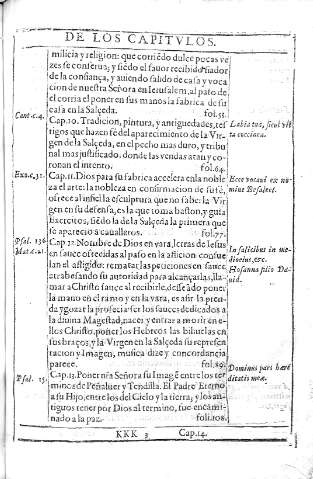 DE LOS CAPITVLOS.
milicia y religion: que corriẽdo dulce pocas ve
zes se conserua; y siẽdo el fauor recibido fiador
de la confiança, y auiendo salido de casa y voca
cion de nuestra Señora en Ierusalem, al paso de
el corria el poner en sus manos la fabrica de su
casa en la Salçeda. fol.55.
Cant.c.4.
Cap.10. Tradicion, pintura, y antiguedades, tes
tigos que hazen fẽ del aparecimento de la Vir
gen de la Salçeda, en el pecho mas duro, y tribu
nal mas justificado, donde las vendas atan y co-
ronan el intento. fol.64.
Labia tua, sicut vit
ta coccinea.
Exo.c.31.
Cap.11. Dios para su fabrica accelera en la noble
za el arte: la nobleza en confirmacion de su fè,
ofrece al infiel la esculptura que no sabe: la Vir
gen en su defensa, es la que toma baston, y guia
exercitos, siẽdo la de la Salçeda la primera que
se aparecio a caualleros. fol.77.
Ecce vocaui ex no-
mine Beseleel.
Psal. 136.
Mat.c.21.
Cap.12. Nombre de Dios en vara, letras de Iesus
en sauce ofrecidas al paso en la aflicion consue
lan el afligido: rematar las peticiones en sauce,
atrabesando su autoridad para alcançarlas, lla-
mar a Christo sauce al recibirle, desseãdo poner
la mano en el ramo y en la vara, es asir la pren-
da y gozar la profecia: ser los sauces dedicados a
la diuina Magestad, nacer y entrar a morir en e-
llos Christo, poner los Hebreos las bihuelas en
sus braços, y la Virgen en la Salçeda su represen
tacion y Imagen, musica dize y concordancia
parece. fol.89.
In salicibus in me-
dio eius, &c.
Hosanna filio Da-
uid.
Psal. 15.
Cap.13. Poner nr̃a Señora su Imagẽ entre los ter
minos de Peñaluer y Tendilla. El Padre Eterno
a su Hijo, entre los del Cielo y la tierra, y los an-
tiguos tener por Dios al termino, fue encami-
nado a la paz. fol.108.
Dominus pars hære
ditatis meæ.
KKK 3 Cap.14.